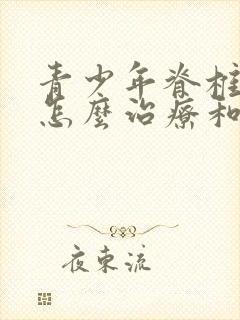 青少年脊柱
怎麼治療和
夜東流